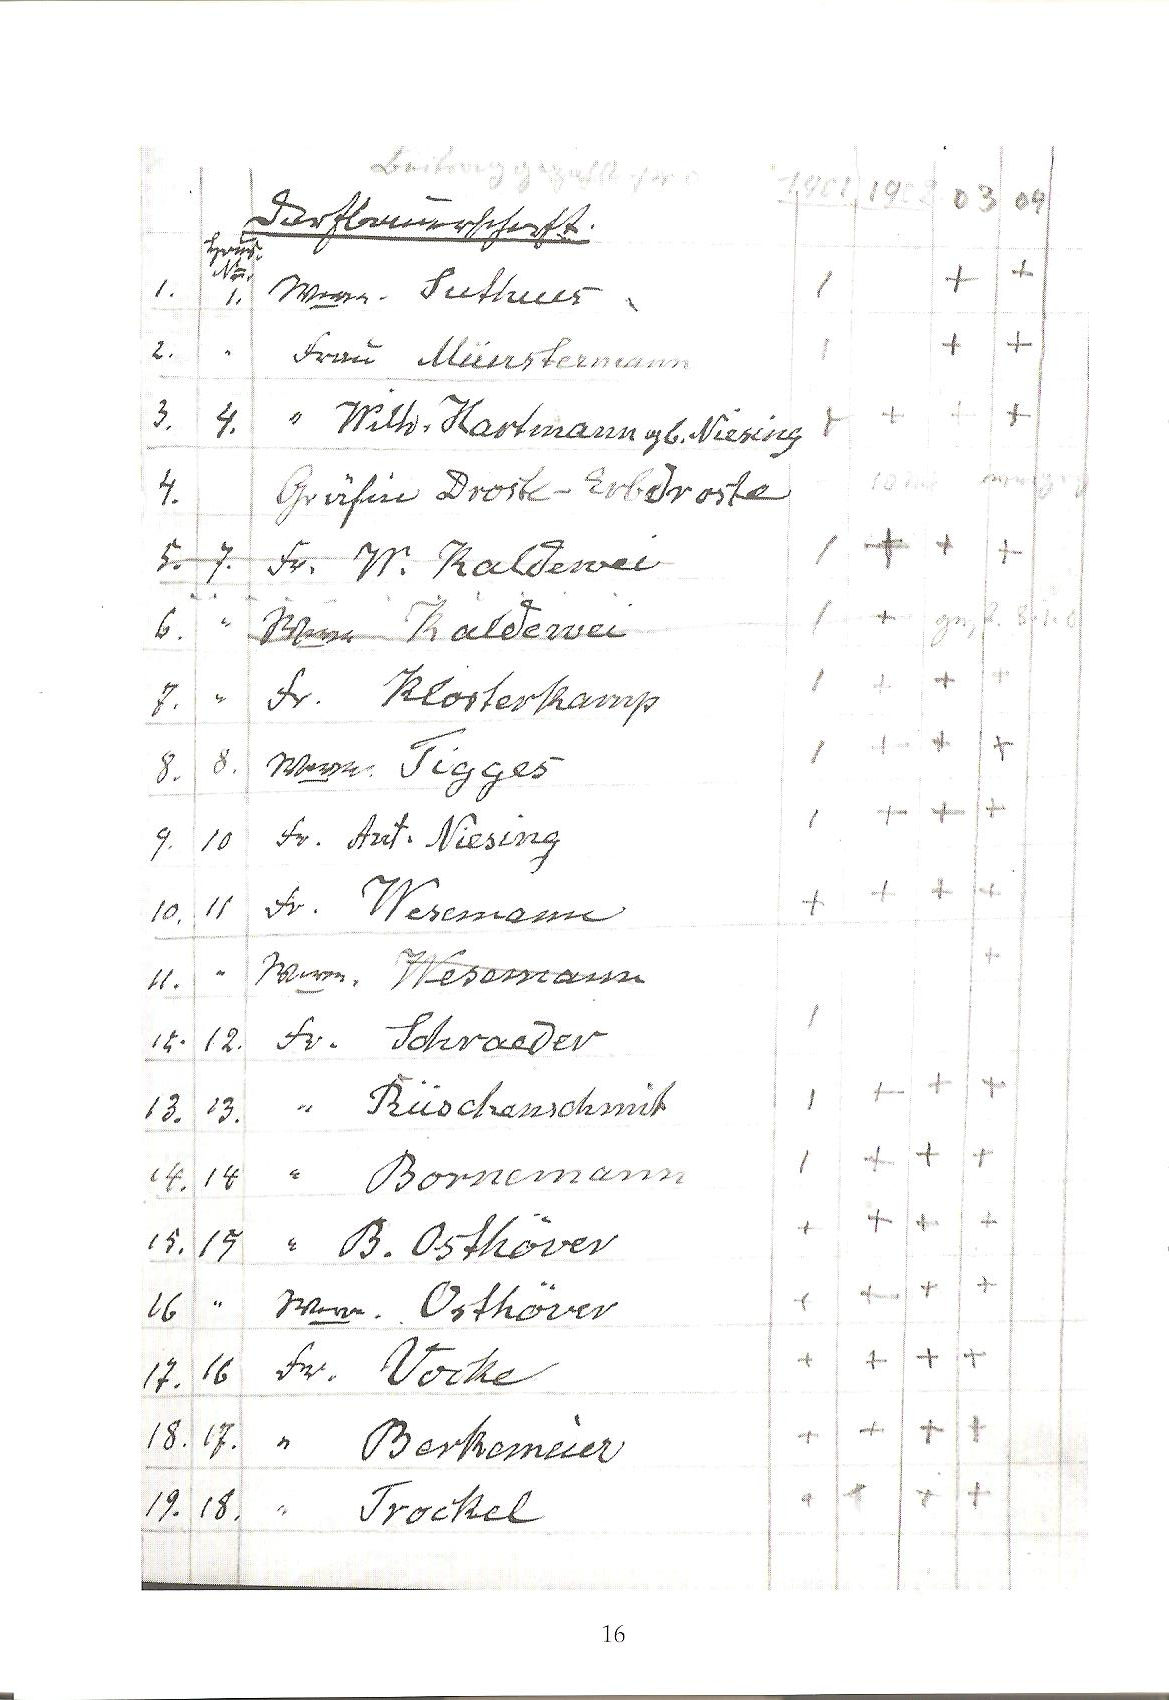 Beitrag gezahlt pro 1901 1902 03 04
Dorfbauerschaft.
Haus-
No.
1. 1. Wwe. Suthues / + +
2. " Frau Münstermann / + +
3. 4. " Wilh. Hartmann gb. Niesing + + + +
4. Gräfin Droste-Erbdroste
5. 7. Fr. W. Kaldewei / + + +
6. " Kaldewei / +
7. " Fr. Klosterkamp / + + +
8. 8. Tigges / + + +
9. 10 Fr. Ant. Niesing / + + +
10. 11 Fr. Wesemann + + + +
11. " Wesemann +
12. 12. Fr. Schraeder /
13. 13. " Rüschenschmit / + + +
14. 14 " Bornemann / + + +
15. 15 " B. Osthöver + + + +
16 " Osthöver + + + +
17. 16 Fr. Vocke + + + +
18. 17. " Berkemeier + + + +
19. 18. " Trockel + + + +
16